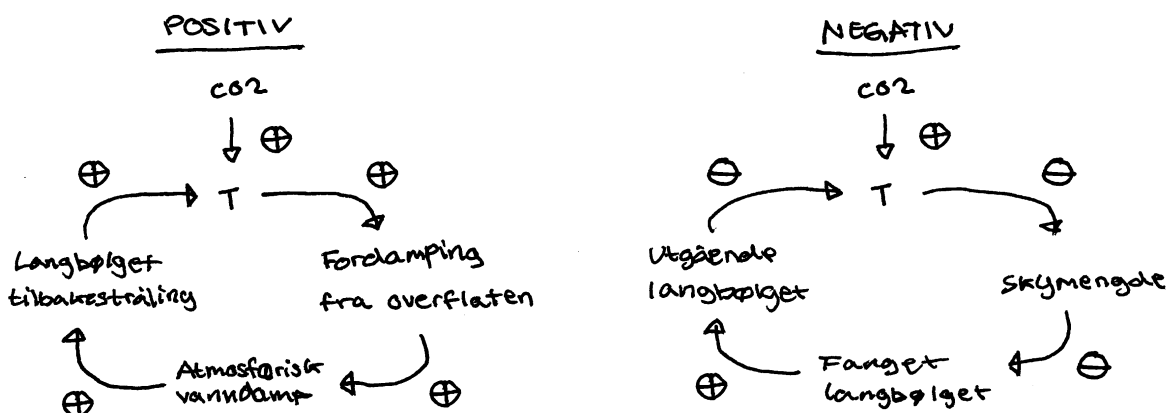 POSITIV
CO2
⊕
⊕
T
⊕
Langbølget
tilbakestråling
Fordamping
fra overflaten
Atmosfærisk
vanndamp
⊕
⊕
NEGATIV
CO2
⊕
⊖
T
⊖
Utgående
langbølget
Skymengde
Fanget
langbølget
⊕
⊖